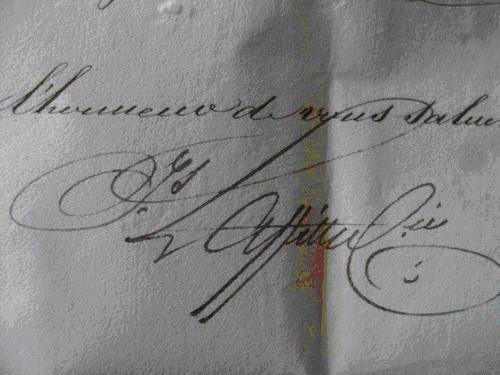 l'honneur de vous salue
Js Laffitte Cie